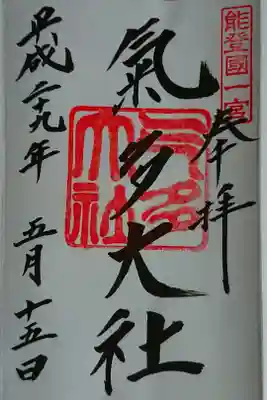 能登國一宮
奉拝
氣多大社
氣多大社
平成二十九年 五月十五日